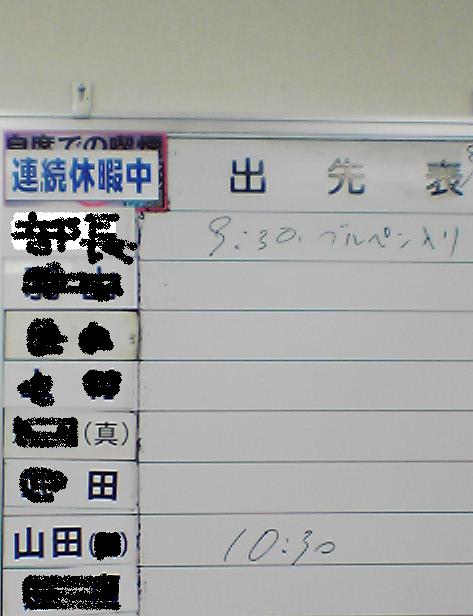 自席での喫煙
連続休暇中
出先表
部長 9:30. ブルペン入り
(真)
田
山田( 10:30